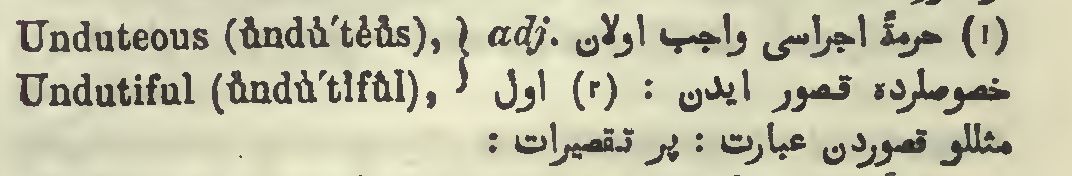 Unduteous (ŭndū́tĕŭs), } adj. (۱) حرمةً اجراسی واجب اولان
Undutiful (ŭndū́tĭfŭl), } خصوصلرده قصور ایدن : (۲) اول
مثللو قصوردن عبارت : پر تقصیرات :